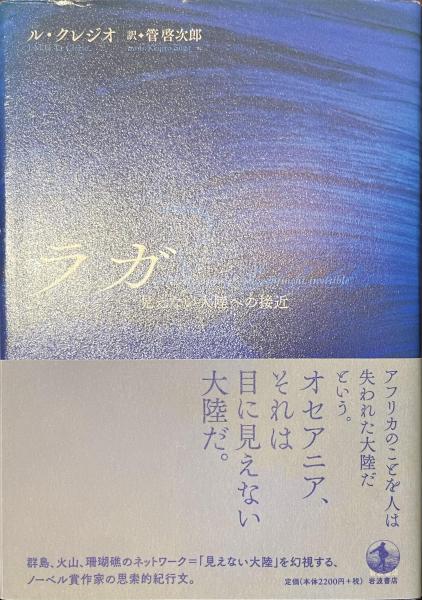 ル・クレジオ 訳・管啓次郎
J.M.G. Le Clézio
ラガ
continent invisible
見えない大陸への接近
アフリカのことを人は
失われた大陸だ
という。
オセアニア、
それは
目に見えない
大陸だ。
群島、火山、珊瑚礁のネットワーク=「見えない大陸」を幻視する、
ノーベル賞作家の思索的紀行文。
定価(本体2200円+税) 岩波書店